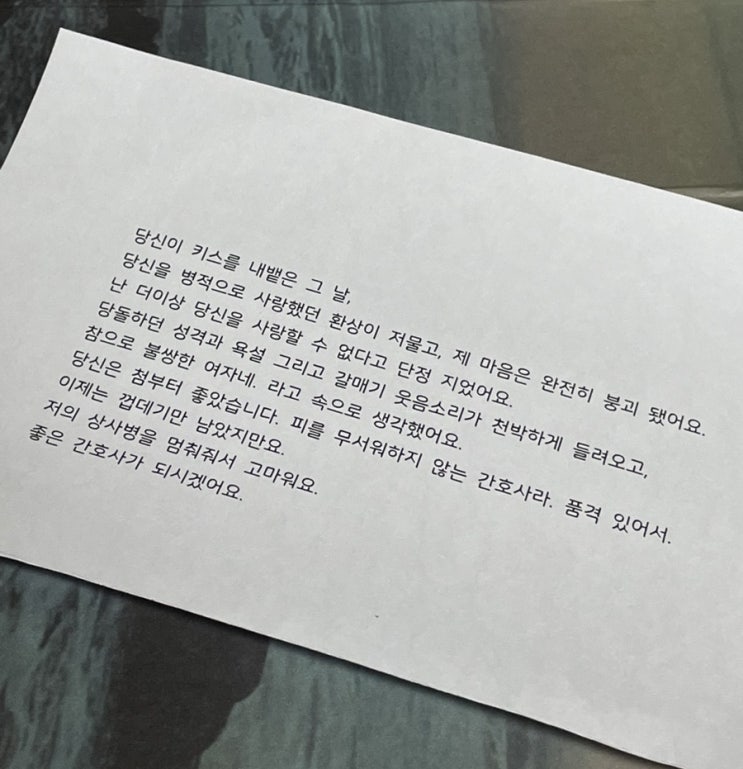 당신이 키스를 내뱉은 그 날,
당신을 병적으로 사랑했던 환상이 저물고, 제 마음은 완전히 붕괴 됐어요.
난 더이상 당신을 사랑할 수 없다고 단정 지었어요.
당돌하던 성격과 욕설 그리고 갈매기 웃음소리가 천박하게 들려오고,
참으로 불쌍한 여자네. 라고 속으로 생각했어요.
당신은 첨부터 좋았습니다. 피를 무서워하지 않는 간호사라. 품격 있어서.
이제는 껍데기만 남았지만요.
저의 상사병을 멈춰줘서 고마워요.
좋은 간호사가 되시겠어요.